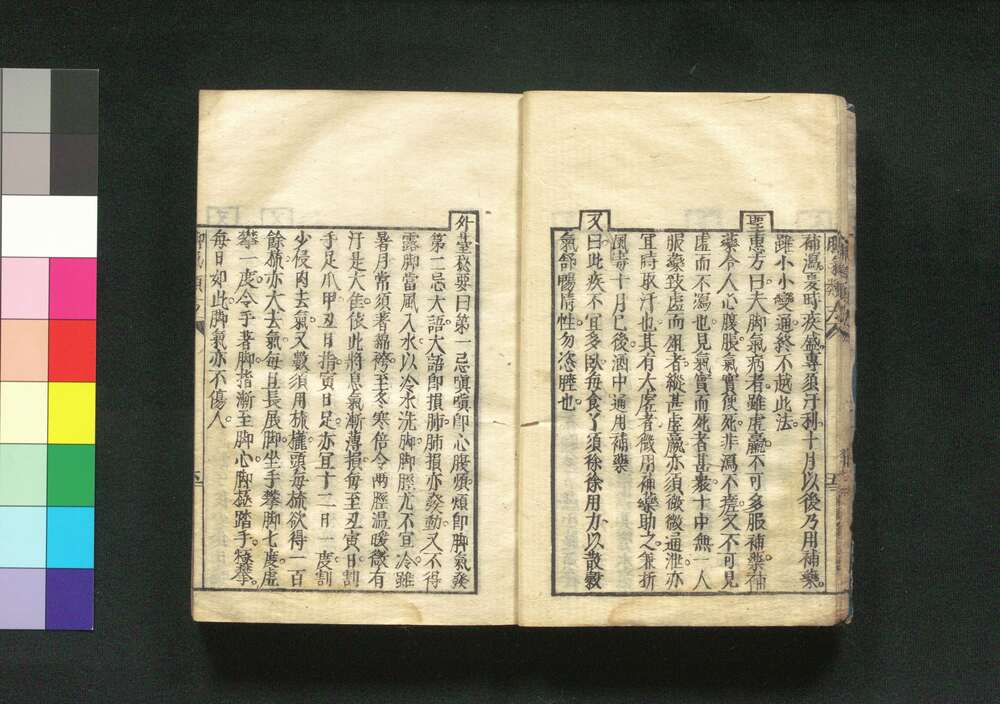 補瀉夏時疾盛專須汗利十月以後乃用補藥
雖小小變通終不越此法
聖惠方曰夫脚氣病者雖虛羸不可多服補藥補
藥令人心腹脹氣實便死非瀉不痊又不可見
虛而不瀉也見氣實而死者甚衆十中無一人
服藥致虛而殂者縱甚虛羸亦須微微通泄亦
宜時取汗也其有大虛者微用補藥助之兼折
風毒十月已後酒中通用補藥
又曰此疾不宜多臥每食了須徐徐用力以散穀
氣舒暢情性勿恣睡也
外臺秘要曰第一忌嗔嗔卽心腹煩煩卽脚氣發
第二忌大語大語卽損肺肺損亦發動又不得
露脚當風入水以冷水洗脚脚脛尤不宜冷雖
暑月常須著綿袴至冬寒倍令兩脛温暖微有
汗是大佳依此將息氣漸薄損每至丑寅日割
手足爪甲丑日指寅日足亦宜十二月一度割
少侵肉去氣又數須用梳櫳頭每梳欲得一百
餘梳亦大去氣每旦長展脚坐手攀脚七度虛
攀一度令手著脚指漸至脚心脚極踏手極攀
每日如此脚氣亦不傷人